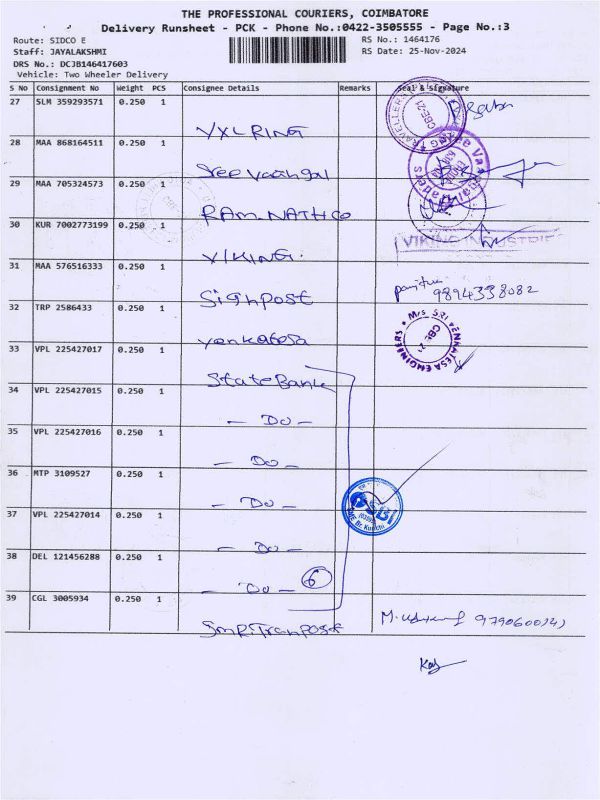 THE PROFESSIONAL COURIERS, COIMBATORE
Delivery Runsheet - PCK - Phone No.:0422-3505555 - Page No.:3
Route: SIDCO E
RS No.: 1464176
Staff: JAYALAKSHMI
RS Date: 25-Nov-2024
DRS No.: DCJB146417603
Vehicle: Two Wheeler Delivery
S No Consignment No Weight PCS Consignee Details Remarks Seal & Signature
27 SLM 359293571 0.250 1 VXL RING
28 MAA 868164511 0.250 1 Sree Vaangal
29 MAA 705324573 0.250 1 RAM NATH CO
30 KUR 7002773199 0.250 1 VIKING.
VIKING INDUSTRIE
31 MAA 576516333 0.250 1 Signpost 9894338082
32 TRP 2586433 0.250 1 venkatesa
M/s SRI VENKATESA ENGINEERS CBE-21
33 VPL 225427017 0.250 1 State Bank
34 VPL 225427015 0.250 1 - Do -
35 VPL 225427016 0.250 1 - Do -
36 MTP 3109527 0.250 1 - Do -
SBI
37 VPL 225427014 0.250 1 - Do -
38 DEL 121456288 0.250 1 - Do - 6
39 CGL 3005934 0.250 1 SMR Tranpost